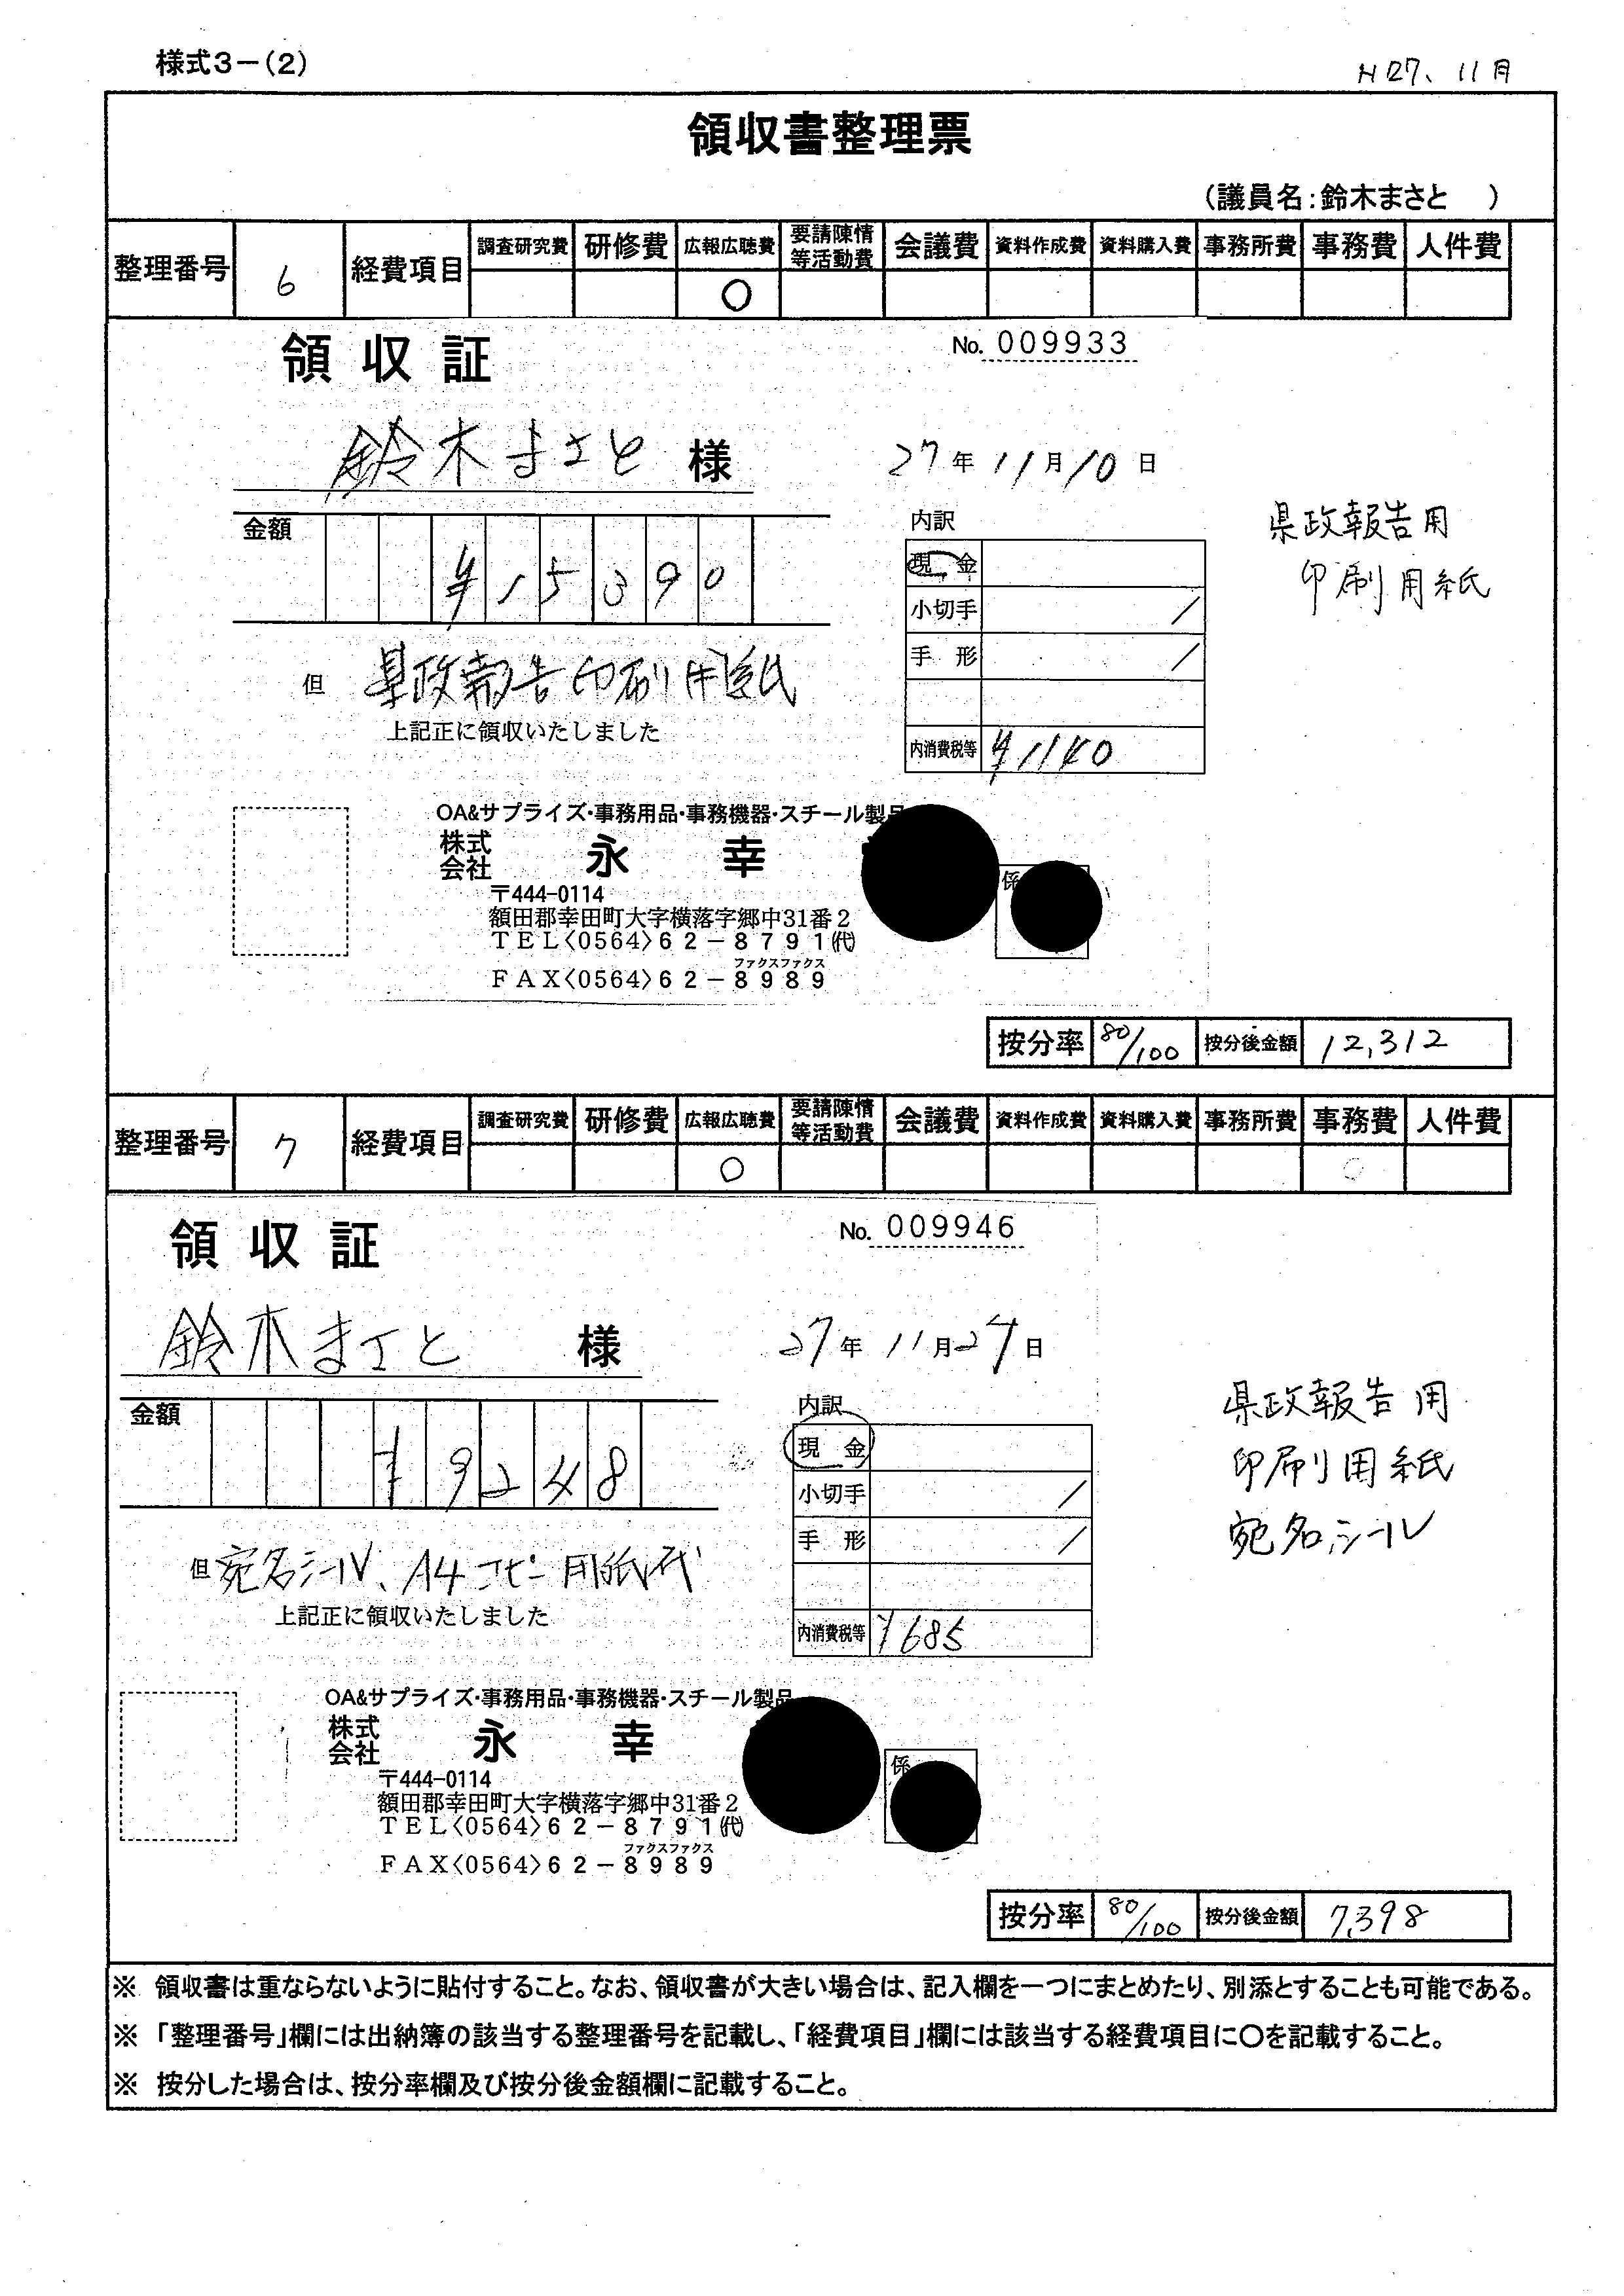 様式3-(2)
H27、11月
領収書整理票
(議員名:鈴木まさと )
整理番号 6 経費項目 調査研究費 研修費 広報広聴費 要請陳情等活動費 会議費 資料作成費 資料購入費 事務所費 事務費 人件費
○
領収証
No. 009933
鈴木まさと 様
27年11月10日
金額 ¥15390
内訳
現金
小切手 /
手形 /
内消費税等 ¥1140
県政報告用
印刷用紙
但 県政報告印刷用紙
上記正に領収いたしました
OA&サプライズ・事務用品・事務機器・スチール製品
株式会社 永幸
係
〒444-0114
額田郡幸田町大字横落字郷中31番2
TEL〈0564〉62-8791(代)
ファクスファクス
FAX〈0564〉62-8989
按分率 80/100 按分後金額 12,312
整理番号 7 経費項目 調査研究費 研修費 広報広聴費 要請陳情等活動費 会議費 資料作成費 資料購入費 事務所費 事務費 人件費
○
領収証
No. 009946
鈴木まさと 様
27年11月27日
金額 ¥9248
内訳
現金
小切手 /
手形 /
内消費税等 ¥685
県政報告用
印刷用紙
宛名シール
但 宛名シール、A4コピー用紙代
上記正に領収いたしました
OA&サプライズ・事務用品・事務機器・スチール製品
株式会社 永幸
係
〒444-0114
額田郡幸田町大字横落字郷中31番2
TEL〈0564〉62-8791(代)
ファクスファクス
FAX〈0564〉62-8989
按分率 80/100 按分後金額 7,398
※ 領収書は重ならないように貼付すること。なお、領収書が大きい場合は、記入欄を一つにまとめたり、別添とすることも可能である。
※ 「整理番号」欄には出納簿の該当する整理番号を記載し、「経費項目」欄には該当する経費項目に○を記載すること。
※ 按分した場合は、按分率欄及び按分後金額欄に記載すること。